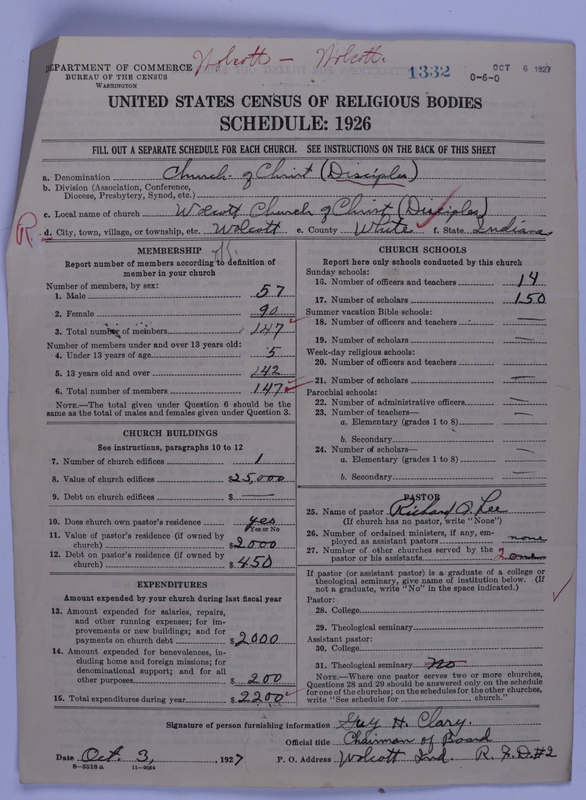 Wolcott - Wolcott.
DEPARTMENT OF COMMERCE
BUREAU OF THE CENSUS
WASHINGTON
1332
OCT 6 1927
0-6-0
UNITED STATES CENSUS OF RELIGIOUS BODIES
SCHEDULE: 1926
FILL OUT A SEPARATE SCHEDULE FOR EACH CHURCH. SEE INSTRUCTIONS ON THE BACK OF THIS SHEET
a. Denomination Church of Christ (Disciples)
b. Division (Association, Conference,
Diocese, Presbytery, Synod, etc.)
c. Local name of church Wolcott Church of Christ (Disciples)
R. d. City, town, village, or township, etc. Wolcott e. County White f. State Indiana
MEMBERSHIP
Report number of members according to definition of
member in your church
Number of members, by sex:
1. Male 57
2. Female 90
3. Total number of members 147
Number of members under and over 13 years old:
4. Under 13 years of age 5
5. 13 years old and over 142
6. Total number of members 147
NOTE.—The total given under Question 6 should be
the same as the total of males and females given under Question 3.
CHURCH BUILDINGS
See instructions, paragraphs 10 to 12
7. Number of church edifices 1
8. Value of church edifices $25,000
9. Debt on church edifices $ —
10. Does church own pastor's residence yes
Yes or No
11. Value of pastor's residence (if owned by
church) $2000
12. Debt on pastor's residence (if owned by
church) $450
EXPENDITURES
Amount expended by your church during last fiscal year
13. Amount expended for salaries, repairs,
and other running expenses; for im-
provements or new buildings; and for
payments on church debt $2000
14. Amount expended for benevolences, in-
cluding home and foreign missions; for
denominational support; and for all
other purposes $200
15. Total expenditures during year $2200
CHURCH SCHOOLS
Report here only schools conducted by this church
Sunday schools:
16. Number of officers and teachers 14
17. Number of scholars 150
Summer vacation Bible schools:
18. Number of officers and teachers —
19. Number of scholars —
Week-day religious schools:
20. Number of officers and teachers —
21. Number of scholars —
Parochial schools:
22. Number of administrative officers —
23. Number of teachers—
a. Elementary (grades 1 to 8) —
b. Secondary —
24. Number of scholars—
a. Elementary (grades 1 to 8) —
b. Secondary —
PASTOR
25. Name of pastor Richard O. Lee
(If church has no pastor, write "None")
26. Number of ordained ministers, if any, em-
ployed as assistant pastors none
27. Number of other churches served by the
pastor or his assistants 2
If pastor (or assistant pastor) is a graduate of a college or
theological seminary, give name of institution below. (If
not a graduate, write "No" in the space indicated.)
Pastor:
28. College
29. Theological seminary
Assistant pastor:
30. College
31. Theological seminary No
NOTE.—Where one pastor serves two or more churches,
Questions 28 and 29 should be answered only on the schedule
for one of the churches; on the schedules for the other churches,
write "See schedule for church."
Signature of person furnishing information Guy H. Clary.
Official title Chairman of Board
Date Oct. 3, 1927 P. O. Address Wolcott Ind R. F. D. #2
8—5518 a 11—9034